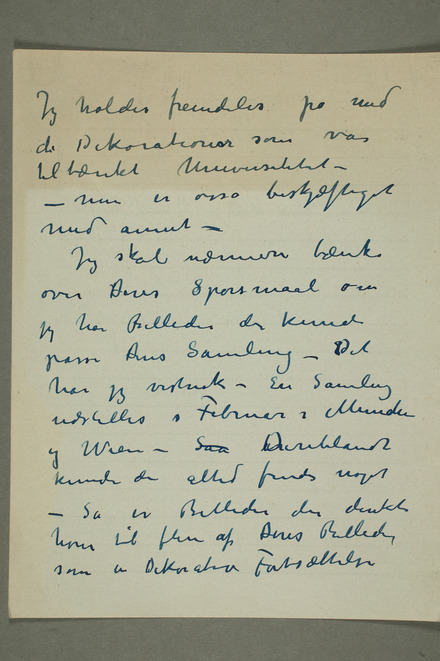 Jeg holder fremdeles på med
de Dekorationer som var
tiltænkt Universitetet –
– men er også beskjæftiget
med annet –
Jeg skal nærmere tænke
over Deres Spørsmaal om
jeg har Billeder der kunde
passe Deres Samling – Det
har jeg vistnok – En Samling
udstilles i Februar i München
og Wien – Saa Deriblandt
kunde der altid finds noget
– Så er Billeder der direkte
hører til flere af Deres Billeder
som en Dekorativ Fortsættelse